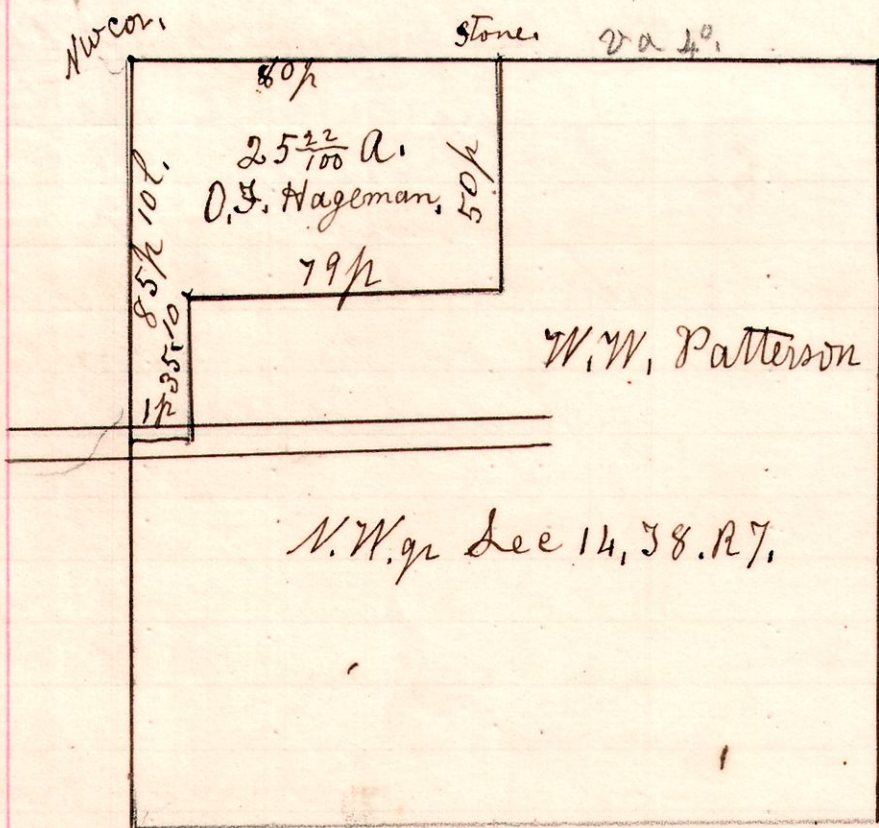 NW cor.
Stone.
va 4°.
80p
25 22/100 A.
O.F. Hageman.
50p
85p 10l.
79p
35-10
1p
W.W. Patterson
N.W. qr Sec 14, T8. R7.